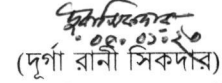 ০৫.০১.২০
(দূর্গা রানী সিকদার)